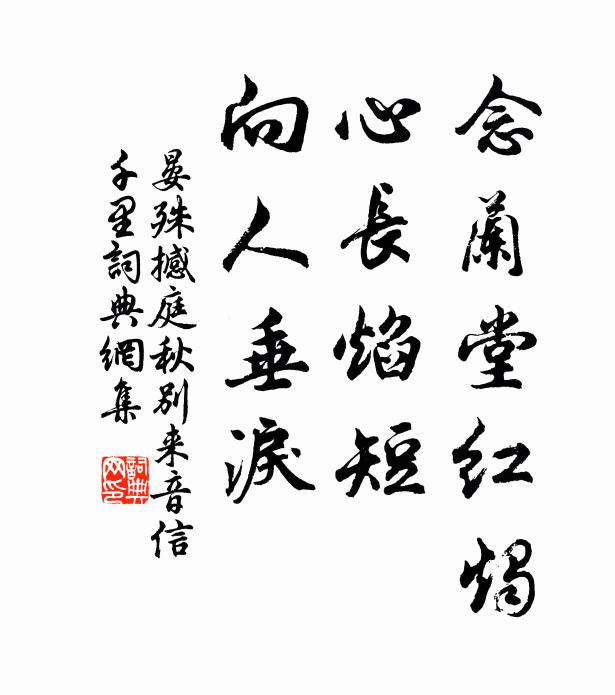 念蘭堂紅燭
心長焰短
向人垂淚
晏殊撼庭秋別来音信
千里詞典網集
詞典
网印